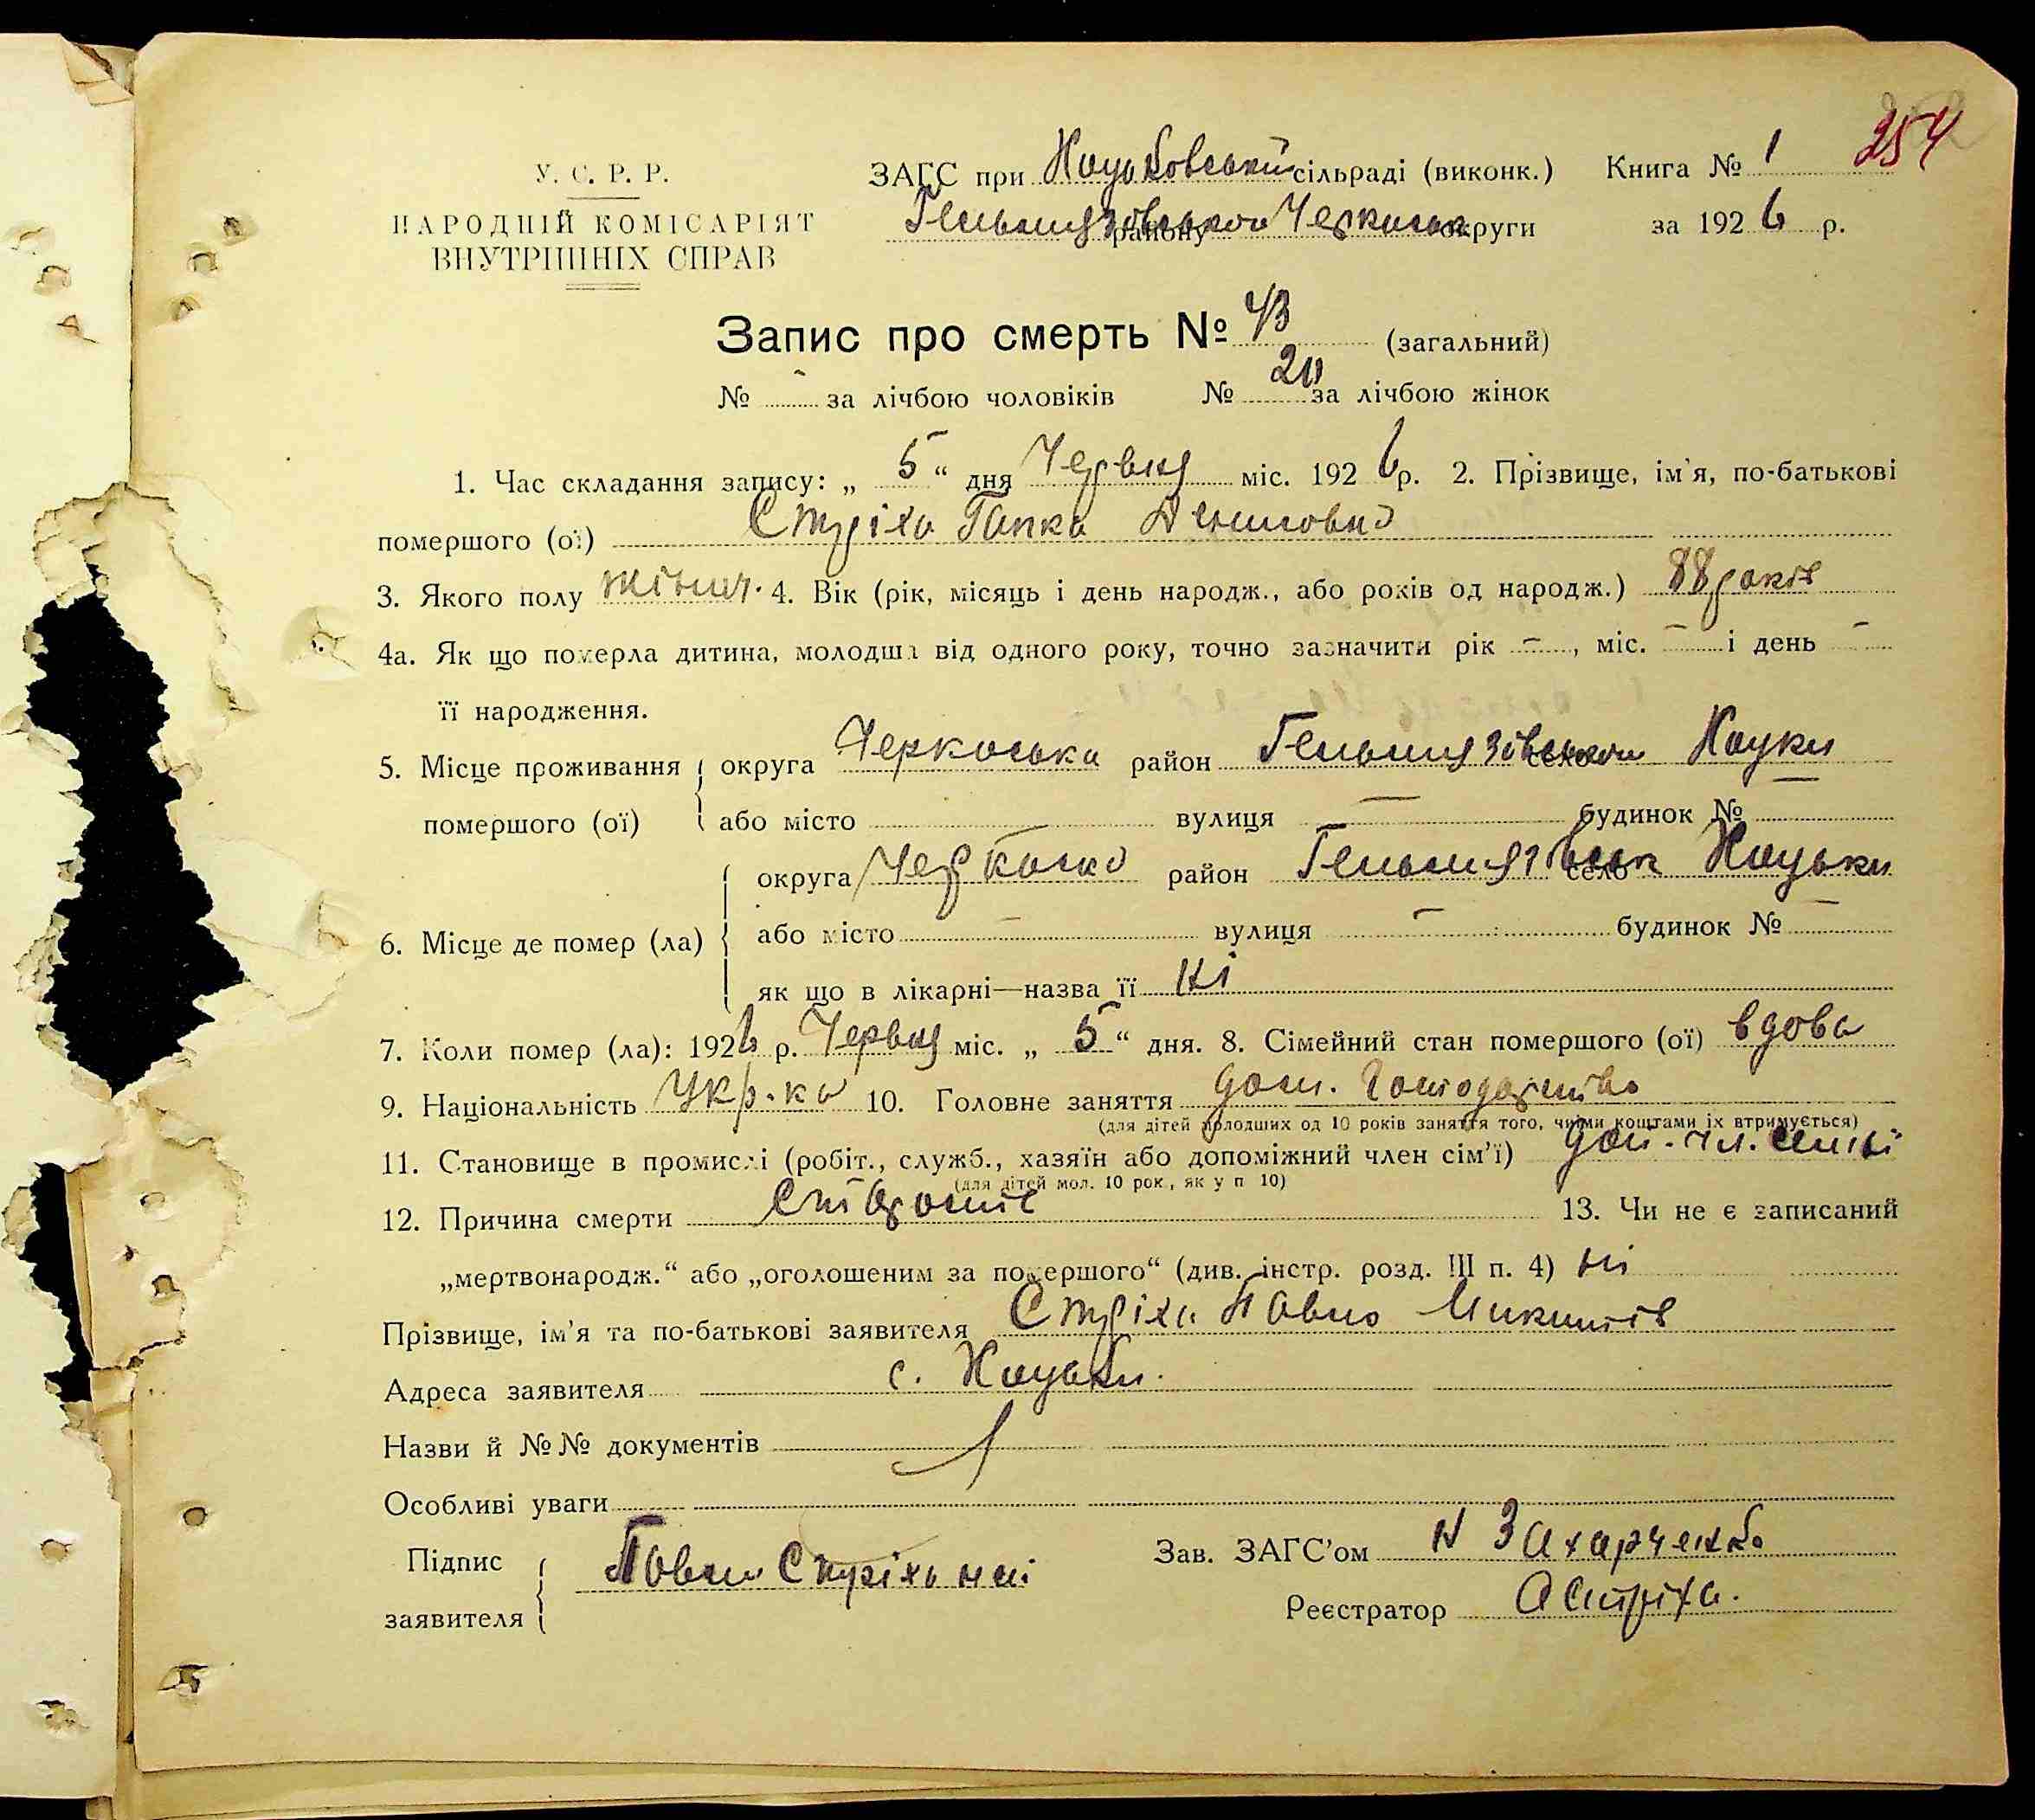 354
У. С. Р. Р.
НАРОДНІЙ КОМІСАРІЯТ
ВНУТРІШНІХ СПРАВ
ЗАГС при Хоцьковській сільраді (виконк.) Книга № 1
Гельмязівськои району Черкаськ округи за 1926 р.
Запис про смерть № 43 (загальний)
№ - за лічбою чоловіків № 20 за лічбою жінок
1. Час складання запису: „ 5 “ дня Червця міс. 1926 р. 2. Прізвище, ім'я, по-батькові
помершого (ої) Стріха Гапка Денисовна
3. Якого полу жіноч. 4. Вік (рік, місяць і день народж., або років од народж.) 88 років
4а. Як що померла дитина, молодша від одного року, точно зазначити рік –, міс. – і день –
її народження.
5. Місце проживання округа Черкаська район Гельмязівськои село Хоцки
помершого (ої) або місто вулиця – будинок № –
округа Черкаська район Гельмязівськ село Хоцьки
6. Місце де помер (ла) або місто – вулиця – будинок № –
як що в лікарні—назва її ні
7. Коли помер (ла): 1926 р. Червця міс. „ 5 “ дня. 8. Сімейний стан помершого (ої) вдова
9. Національність Укр-ка 10. Головне заняття дом. господарство
(для дітей молодших од 10 років заняття того, чиїми коштами їх втримується)
11. Становище в промислі (робіт., служб., хазяїн або допоміжний член сім'ї) доп. чл. сім'ї
(для дітей мол. 10 рок., як у п 10)
12. Причина смерти старость 13. Чи не є записаний
„мертвонародж.“ або „оголошеним за помершого“ (див. інстр. розд. III п. 4) ні
Прізвище, ім'я та по-батькові заявителя Стріха Павло Микитів
Адреса заявителя с. Хоцьки.
Назви й №№ документів
Особливі уваги
Підпис Павло Стріха Зав. ЗАГС'ом Н Захарченко
заявителя Реєстратор А Стріха.